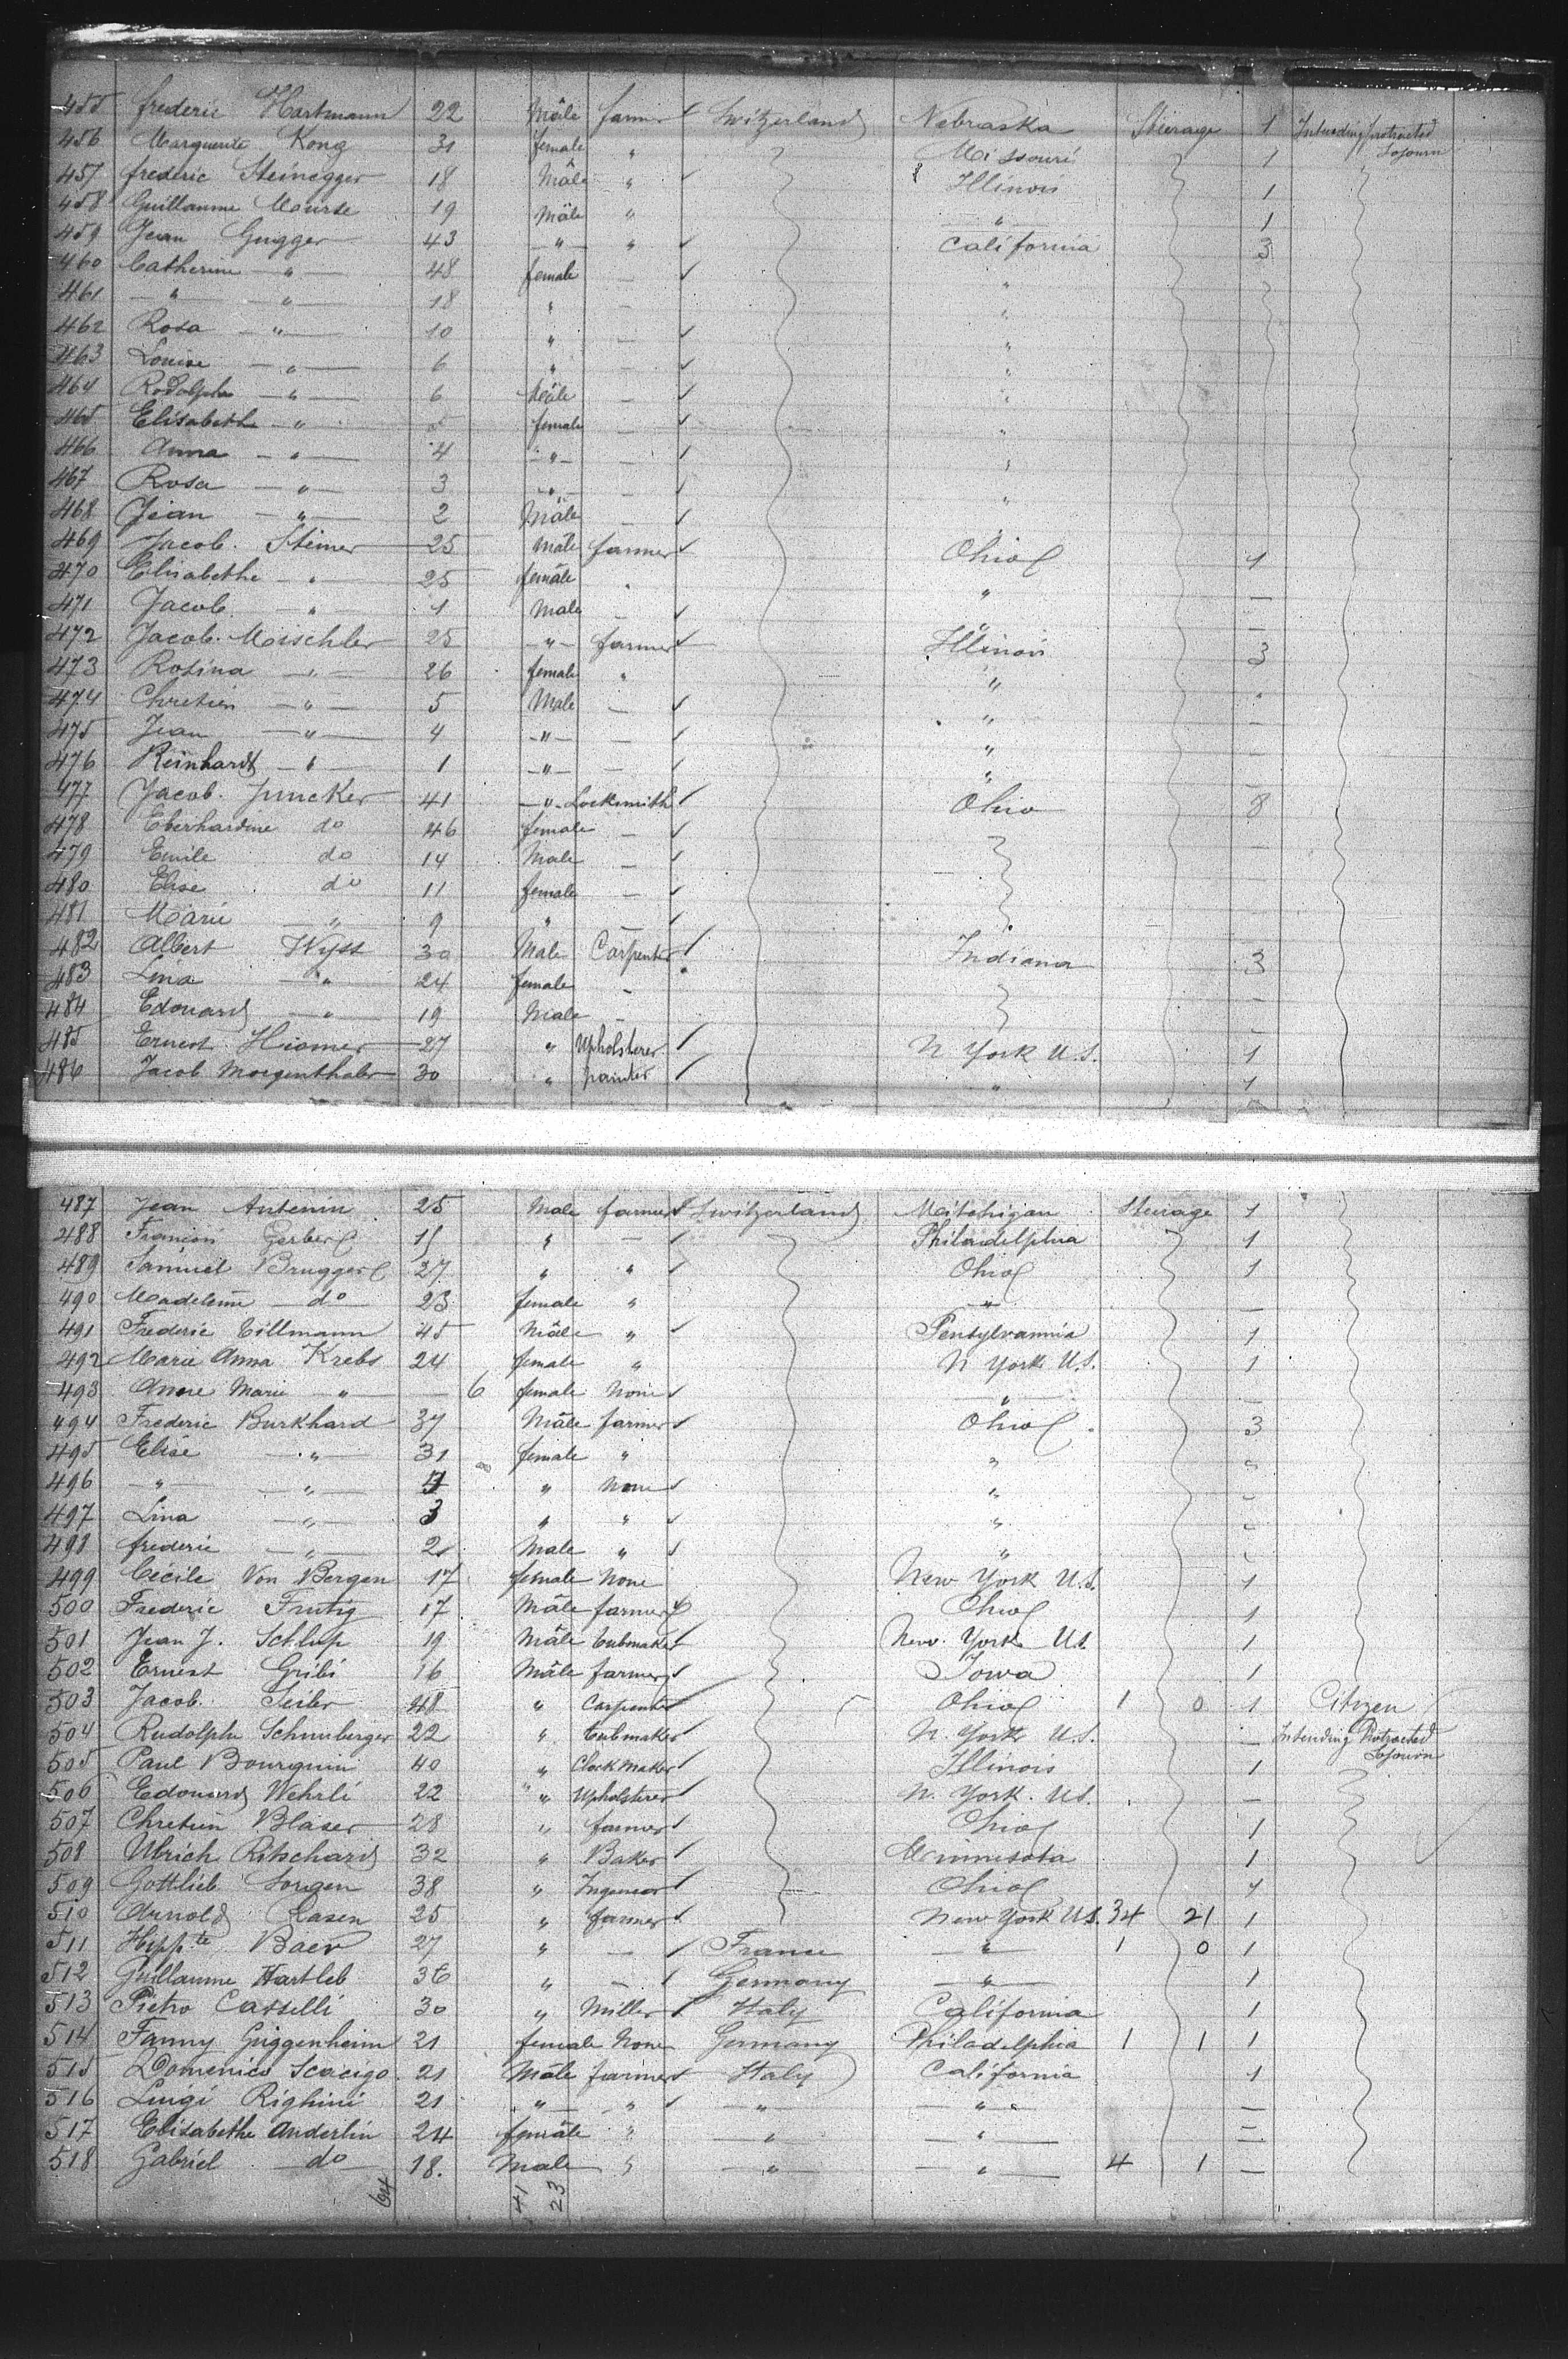 455 frederic Hartmann 22 Mâle farmer Switzerland Nebraska Steerage 1 Intending protracted Sojourn
456 Marguerite Kong 31 female " Missouri 1
457 frederic Steinegger 18 Mâle " Illinois 1
458 Guillaume Meurse 19 Mâle " " 1
459 Jean Gugger 43 " " California 3
460 Catherine " 48 female — "
461 " " 18 " — "
462 Rosa " 10 " — "
463 Louise " 6 " — "
464 Rodolphe " 6 Mâle — "
465 Elisabeth " 5 female — "
466 Anna " 4 " — "
467 Rosa " 3 " — "
468 Jean " 2 Mâle —
469 Jacob Steiner 25 Mâle farmer Ohio 1
470 Elisabethe " 25 female " " —
471 Jacob " 1 Male — " —
472 Jacob Moischler 25 " farmer Illinois 3
473 Rosina " 26 female " "
474 Chretien " 5 Male — " —
475 Jean " 4 " — " —
476 Reinhardt " 1 " — " —
477 Jacob Juncker 41 " Locksmith Ohio 8
478 Eberhardine do 46 female — —
479 Emile do 14 Male — —
480 Elise do 11 female — —
481 Marie " 9 " — —
482 Albert Wyss 30 Male Carpenter Indiana 3
483 Lina " 24 female — —
484 Edouard " 19 Male — —
485 Ernest Hiomer 27 " Upholsterer N York U.S. 1
486 Jacob Morgenthaler 30 " painter " 1
487 Jean Antenin 25 Male farmer Switzerland Mitchigan Steerage 1
488 Francois Gerber 15 " — Philadelphia 1
489 Samuel Brugger 27 " " Ohio 1
490 Madeleine do 23 female " " —
491 Frederic Tillmann 45 Mâle " Pensylvannia 1
492 Marie Anna Krebs 24 female " N York U.S. 1
493 Anne Marie " — 6 female None " —
494 Frederic Burkhard 37 Mâle farmer Ohio 3
495 Elise " 31 female " "
496 " " 4 " None "
497 Lina " 3 " " "
498 frederic " 2 Male " "
499 Cécile Von Bergen 17 female None New York U.S. 1
500 Frederic Frutig 17 Mâle farmer Ohio 1
501 Jean J. Schlup 19 Mâle Cubmaker New York U.S. 1
502 Ernest Gribi 16 Mâle farmer Iowa 1
503 Jacob Seiler 48 " Carpenter Ohio 1 0 1 Citizen
504 Rudolphe Schnuberger 22 " Cubmaker N. York U.S. — Intending Protracted Sojourn
505 Paul Bourquin 40 " Clock Maker Illinois 1
506 Edouard Wehrli 22 " Upholsterer N. York. U.S. —
507 Chretien Blaser 28 " farmer Ohio 1
508 Ulrich Ritschard 32 " Baker Minnesota 1
509 Gottlieb Sorgen 38 " Ingeneer Ohio 1
510 Arnold Rasen 25 " farmer New York U.S. 34 21 1
511 Hyppte Baer 27 " — France " 1 0 1
512 Guillaume Hartleb 36 " — Germany " 1
513 Pietro Casselli 30 " Miller Italy California 1
514 Fanny Guggenheim 21 female None Germany Philadelphia 1 1 1
515 Domenico Scacigo 21 Mâle farmer Italy California 1
516 Luigi Righini 21 " " " " —
517 Elisabethe Anderlin 24 female " " " —
518 Gabriel do 18. Male " " " 4 1 —
64 41 23